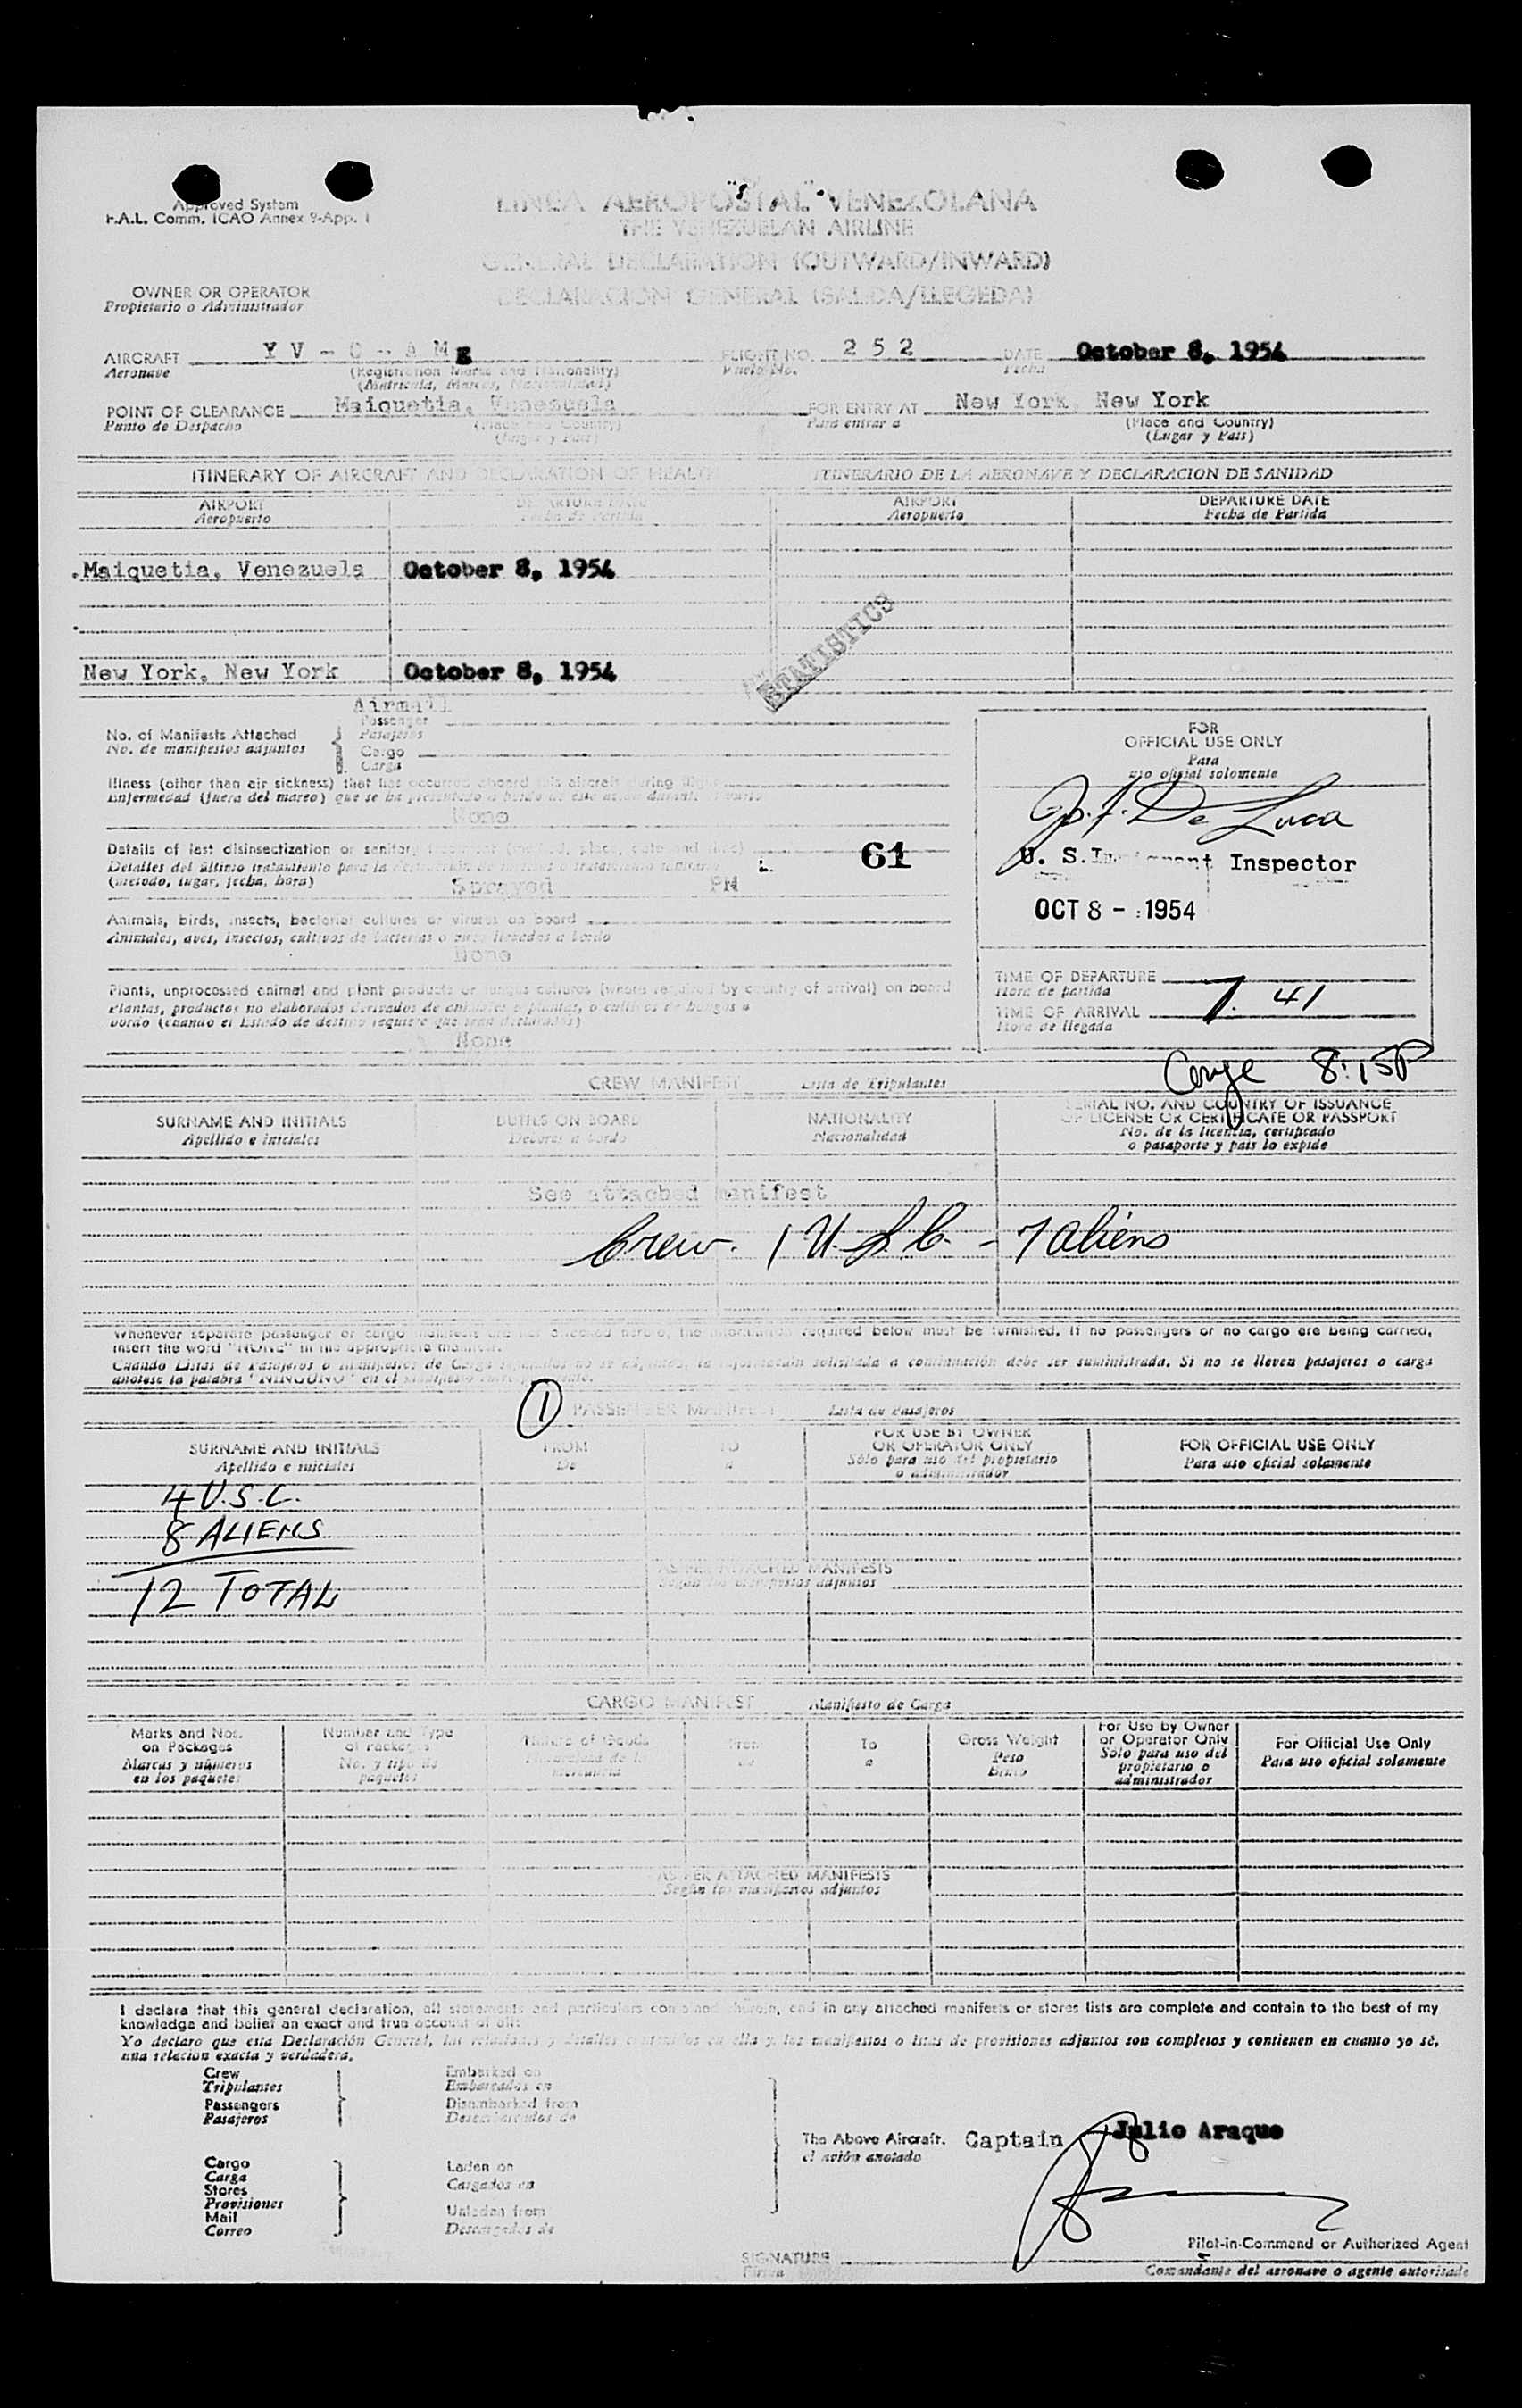 Approved System
F.A.L. Comm. ICAO Annex 9-App. 1
LINEA AEROPOSTAL VENEZOLANA
THE VENEZUELAN AIRLINE
GENERAL DECLARATION (OUTWARD/INWARD)
DECLARACION GENERAL (SALIDA/LLEGEDA)
OWNER OR OPERATOR
Propietario o Administrador
AIRCRAFT YV-C-AM FLIGHT NO. 252 DATE October 8, 1954
Aeronave (Registration Marks and Nationality) Vuelo No. Fecha
(Matricula, Marcas, Nacionalidad)
POINT OF CLEARANCE Maiquetia, Venezuela FOR ENTRY AT New York, New York
Punto de Despacho (Place and Country) Para entrar a (Place and Country)
(Lugar y Pais) (Lugar y Pais)
ITINERARY OF AIRCRAFT AND DECLARATION OF HEALTH ITINERARIO DE LA AERONAVE Y DECLARACION DE SANIDAD
AIRPORT DEPARTURE DATE AIRPORT DEPARTURE DATE
Aeropuerto Fecha de Partida Aeropuerto Fecha de Partida
Maiquetia, Venezuela October 8, 1954
STATISTICS
New York, New York October 8, 1954
Airmail
No. of Manifests Attached Passenger
No. de manifiestos adjuntos Pasajeros
Cargo
Carga
FOR
OFFICIAL USE ONLY
Para
uso oficial solamente
Illness (other than air sickness) that has occurred aboard this aircraft during flight
Enfermedad (fuera del mareo) que se ha
None
Jo. F. De Luca
U. S. Immigrant Inspector
OCT 8 - 1954
Details of last disinsectization or sanitary treatment (method, place, date and time) 61
Detalles del último tratamiento para la
(método, lugar, fecha, hora) Sprayed PN
Animals, birds, insects, bacterial cultures or viruses on board
Animales, aves, insectos, cultivos de bacterias o virus llevados a bordo
None
TIME OF DEPARTURE
Hora de partida
TIME OF ARRIVAL 7. 41
Hora de llegada
Plants, unprocessed animal and plant products or fungus cultures (where required by country of arrival) on board
Plantas, productos no elaborados derivados de animales o plantas, o cultivos de hongos a
bordo (cuando el Estado de destino requiere que sean declarados)
None
8:15P
CREW MANIFEST Lista de Tripulantes
SURNAME AND INITIALS DUTIES ON BOARD NATIONALITY SERIAL NO. AND COUNTRY OF ISSUANCE
OF LICENSE OR CERTIFICATE OR PASSPORT
Apellido e iniciales Deberes a bordo Nacionalidad No. de la licencia, certificado
o pasaporte y pais lo expide
See attached manifest
Crew. 1 U.S.C. - 7 aliens
Whenever separate passenger or cargo manifests are not attached hereto, the information required below must be furnished. If no passengers or no cargo are being carried,
insert the word "NONE" in the appropriate manifest.
Cuando Listas de Pasajeros o Manifiestos de Carga separados no se adjuntan, la información solicitada a continuación debe ser suministrada. Si no se lleven pasajeros o carga
anótese la palabra "NINGUNO" en el
1 PASSENGER MANIFEST Lista de Pasajeros
SURNAME AND INITIALS FROM TO FOR USE BY OWNER
OR OPERATOR ONLY FOR OFFICIAL USE ONLY
Apellido e iniciales De a Sólo para uso del propietario
o administrador Para uso oficial solamente
4 U.S.C.
8 ALIENS
12 TOTAL
AS PER ATTACHED MANIFESTS
Según los manifiestos adjuntos
CARGO MANIFEST Manifiesto de Carga
Marks and Nos.
on Packages
Marcas y números
en los paquetes
Number and Type
of Packages
No. y tipo de
paquetes
Nature of Goods
Naturaleza de la
mercancía
From
De
To
a
Gross Weight
Peso
Bruto
For Use by Owner
or Operator Only
Sólo para uso del
propietario o
administrador
For Official Use Only
Para uso oficial solamente
AS PER ATTACHED MANIFESTS
Según los manifiestos adjuntos
I declare that this general declaration, all statements and particulars contained therein, and in any attached manifests or stores lists are complete and contain to the best of my
knowledge and belief an exact and true account of all:
Yo declaro que esta Declaración General, las relaciones y detalles contenidos en ella y los manifiestos o listas de provisiones adjuntos son completos y contienen en cuanto yo sé,
una relación exacta y verdadera.
Crew
Tripulantes
Passengers
Pasajeros
Embarked on
Embarcados en
Disembarked from
Desembarcados de
The Above Aircraft. Captain Julio Araque
el avión anotado
Cargo
Carga
Stores
Provisiones
Mail
Correo
Laden on
Cargados en
Unladen from
Descargados de
Pilot-in-Command or Authorized Agent
SIGNATURE
Firma
Comandante del aeronave o agente autorizado